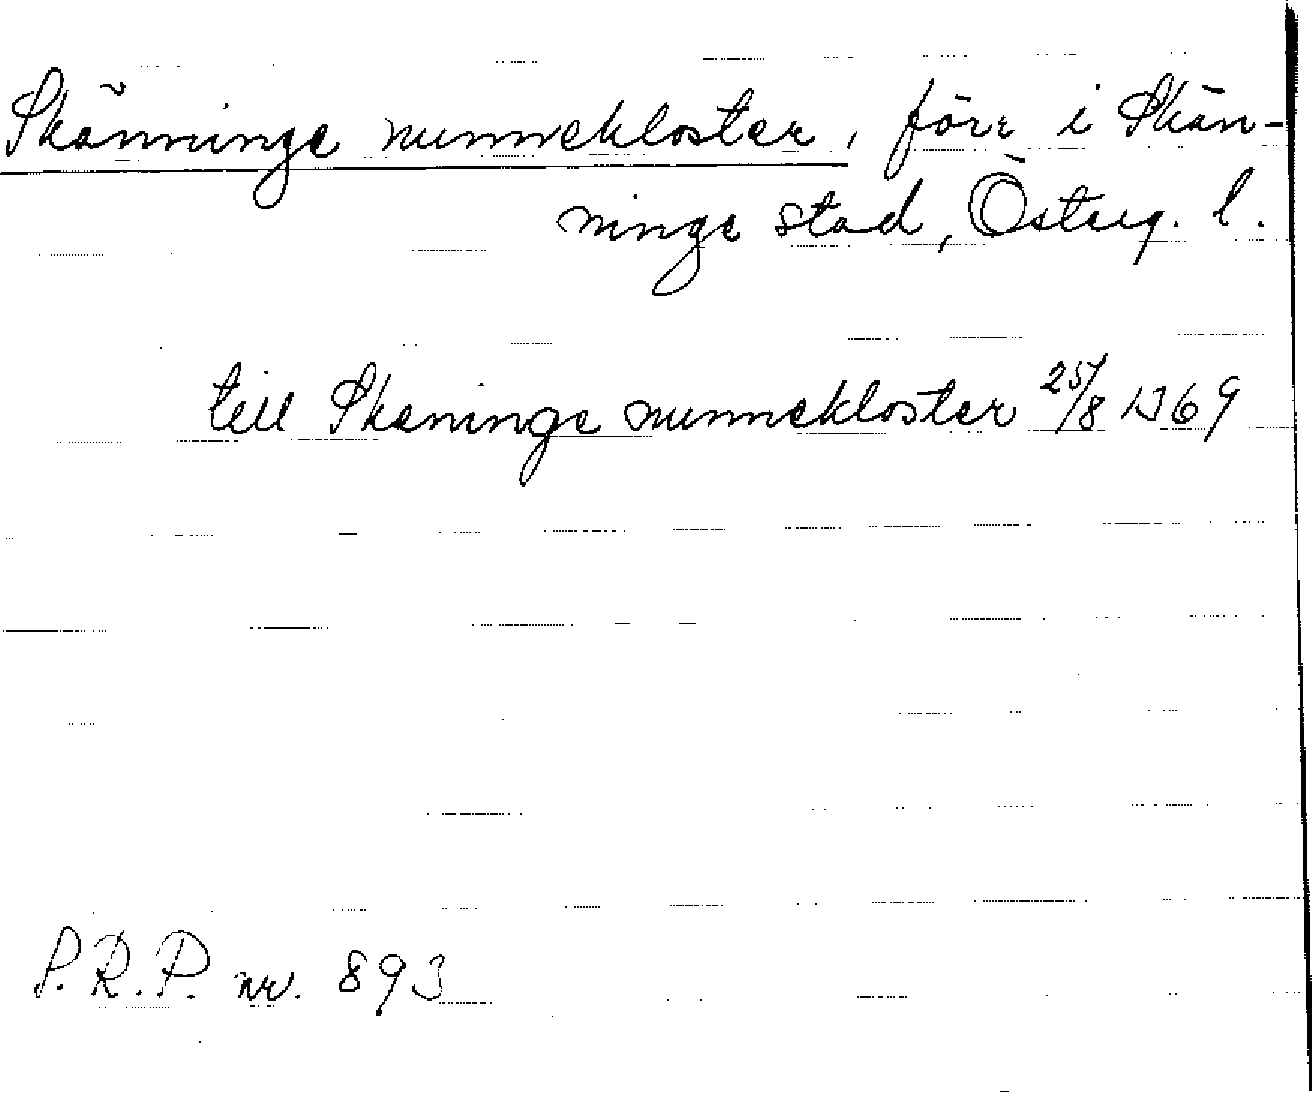 Skänninge nunnekloster, förr i Skän-
ninge stad, Österg. l.
till Skeninge nunnekloster 25/8 1369
S.R.P. nr. 893